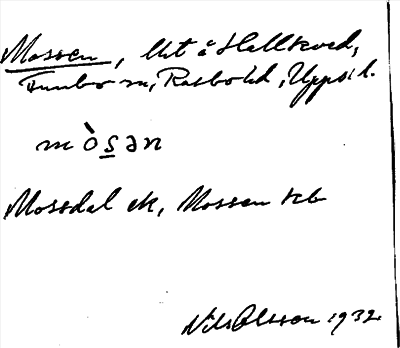 Mossen, Ut å Hallkved,
Funbo sn, Rasbo hd, Upps. l.
mò̀s̲ən
Mossdal ek, Mossen kb
Nils Olsson 1932